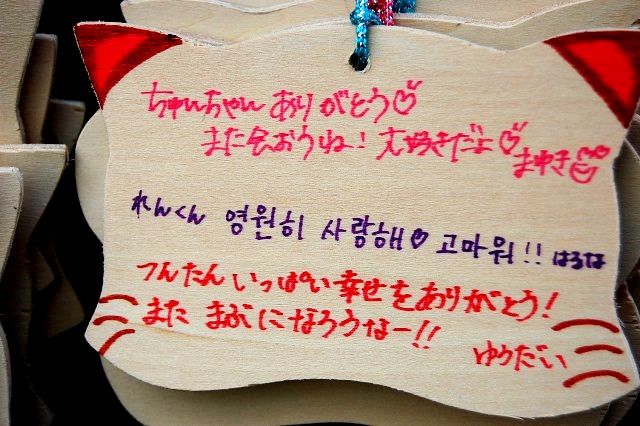 ちゅんちゃん ありがとう♡
また会おうね! 大好きだよ♡ まゆき
れんくん 영원히 사랑해♡ 고마워!! はるな
つんたん いっぱい幸せをありがとう!
また まぶになろうなー!!
ゆうだい